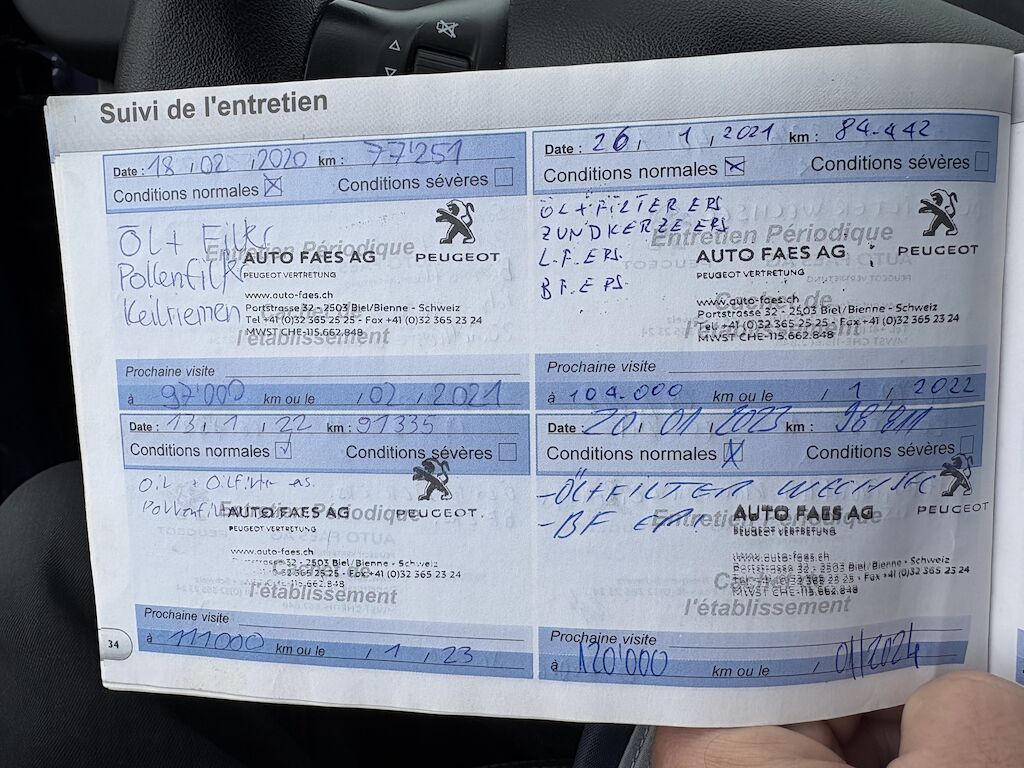 Suivi de l'entretien
Date : 18 / 02 / 2020 km : 77'251
Conditions normales Conditions sévères
Öl + Filter
Pollenfilter
Keilriemen
Entretien Périodique
AUTO FAES AG
PEUGEOT VERTRETUNG
PEUGEOT
www.auto-faes.ch
Portstrasse 32 - 2503 Biel/Bienne - Schweiz
Tel +41 (0)32 365 25 25 - Fax +41 (0)32 365 23 24
MWST CHE-115.662.848
l'établissement
Prochaine visite
à 97'000 km ou le / 02 / 2021
Date : 26 / 1 / 2021 km : 84.442
Conditions normales Conditions sévères
ÖL + FILTER ERS
ZUNDKERZE ERS
L.F. ERS.
B.F. ERS.
Entretien Périodique
AUTO FAES AG
PEUGEOT VERTRETUNG
PEUGEOT
www.auto-faes.ch
Cachet de
Portstrasse 32 - 2503 Biel/Bienne - Schweiz
Tel. +41 (0)32 365 25 25 - Fax +41 (0)32 365 23 24
MWST CHE-115.662.848
l'établissement
Prochaine visite
à 104.000 km ou le / 1 / 2022
Date : 13 / 1 / 22 km : 91335
Conditions normales Conditions sévères
Öl + Ölfilter es.
Pollenfilter
Entretien Périodique
AUTO FAES AG
PEUGEOT VERTRETUNG
PEUGEOT.
www.auto-faes.ch
Portstrasse 32 - 2503 Biel/Bienne - Schweiz
32 365 25 25 - Fax +41 (0)32 365 23 24
Cachet de
CHE-115.662.848
l'établissement
Prochaine visite
à 111000 km ou le / 1 / 23
Date : 20 / 01 / 2023 km : 98'811
Conditions normales Conditions sévères
- ÖL+FILTER WECHSEL
- BF
Entretien Périodique
AUTO FAES AG
PEUGEOT VERTRETUNG
PEUGEOT
www.auto-faes.ch
Portstrasse 32 - 2503 Biel/Bienne - Schweiz
Tel +41 (0)32 365 25 25 - Fax +41 (0)32 365 23 24
Cachet de
MWST CHE-115.662.848
l'établissement
Prochaine visite
à 120'000 km ou le / 01/2024
34